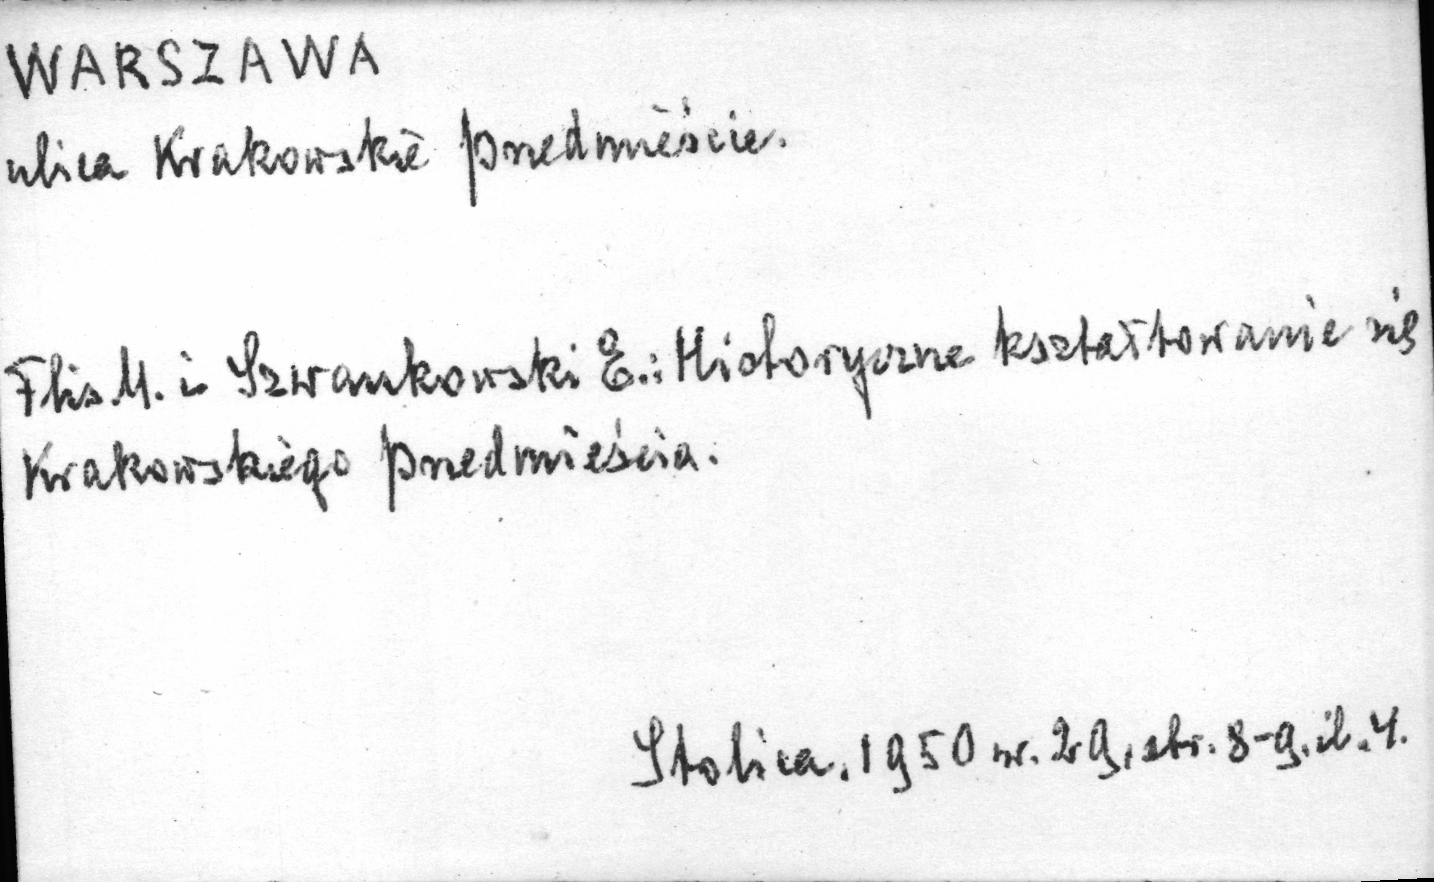 WARSZAWA
ulica Krakowskie przedmieście.
Flis.M. i Szwankowski E.: Historyczne kształtowanie się
Krakowskiego przedmieścia.
Stolica. 1950 nr. 29, str. 8-9. il. 4.